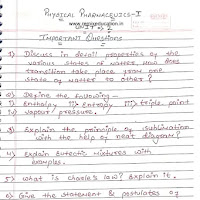 PHYSICAL PHARMACEUTICS-I
www.rapideducation.in
UNIT
IMPORTANT Questions
1) Discuss in detail properties of the
various states of matter, How does
transition take place from one
state of matter to other?
2) Define the following -
i) Enthalpy ii) Entropy iii) triple point
iv) vapour pressure.
3) Explain the principle of sublimation
with the help of neat diagram?
4) Explain Eutectic Mixtures with
examples.
5) what is charle's law? Explain it.
6) Give the statement & postulates of